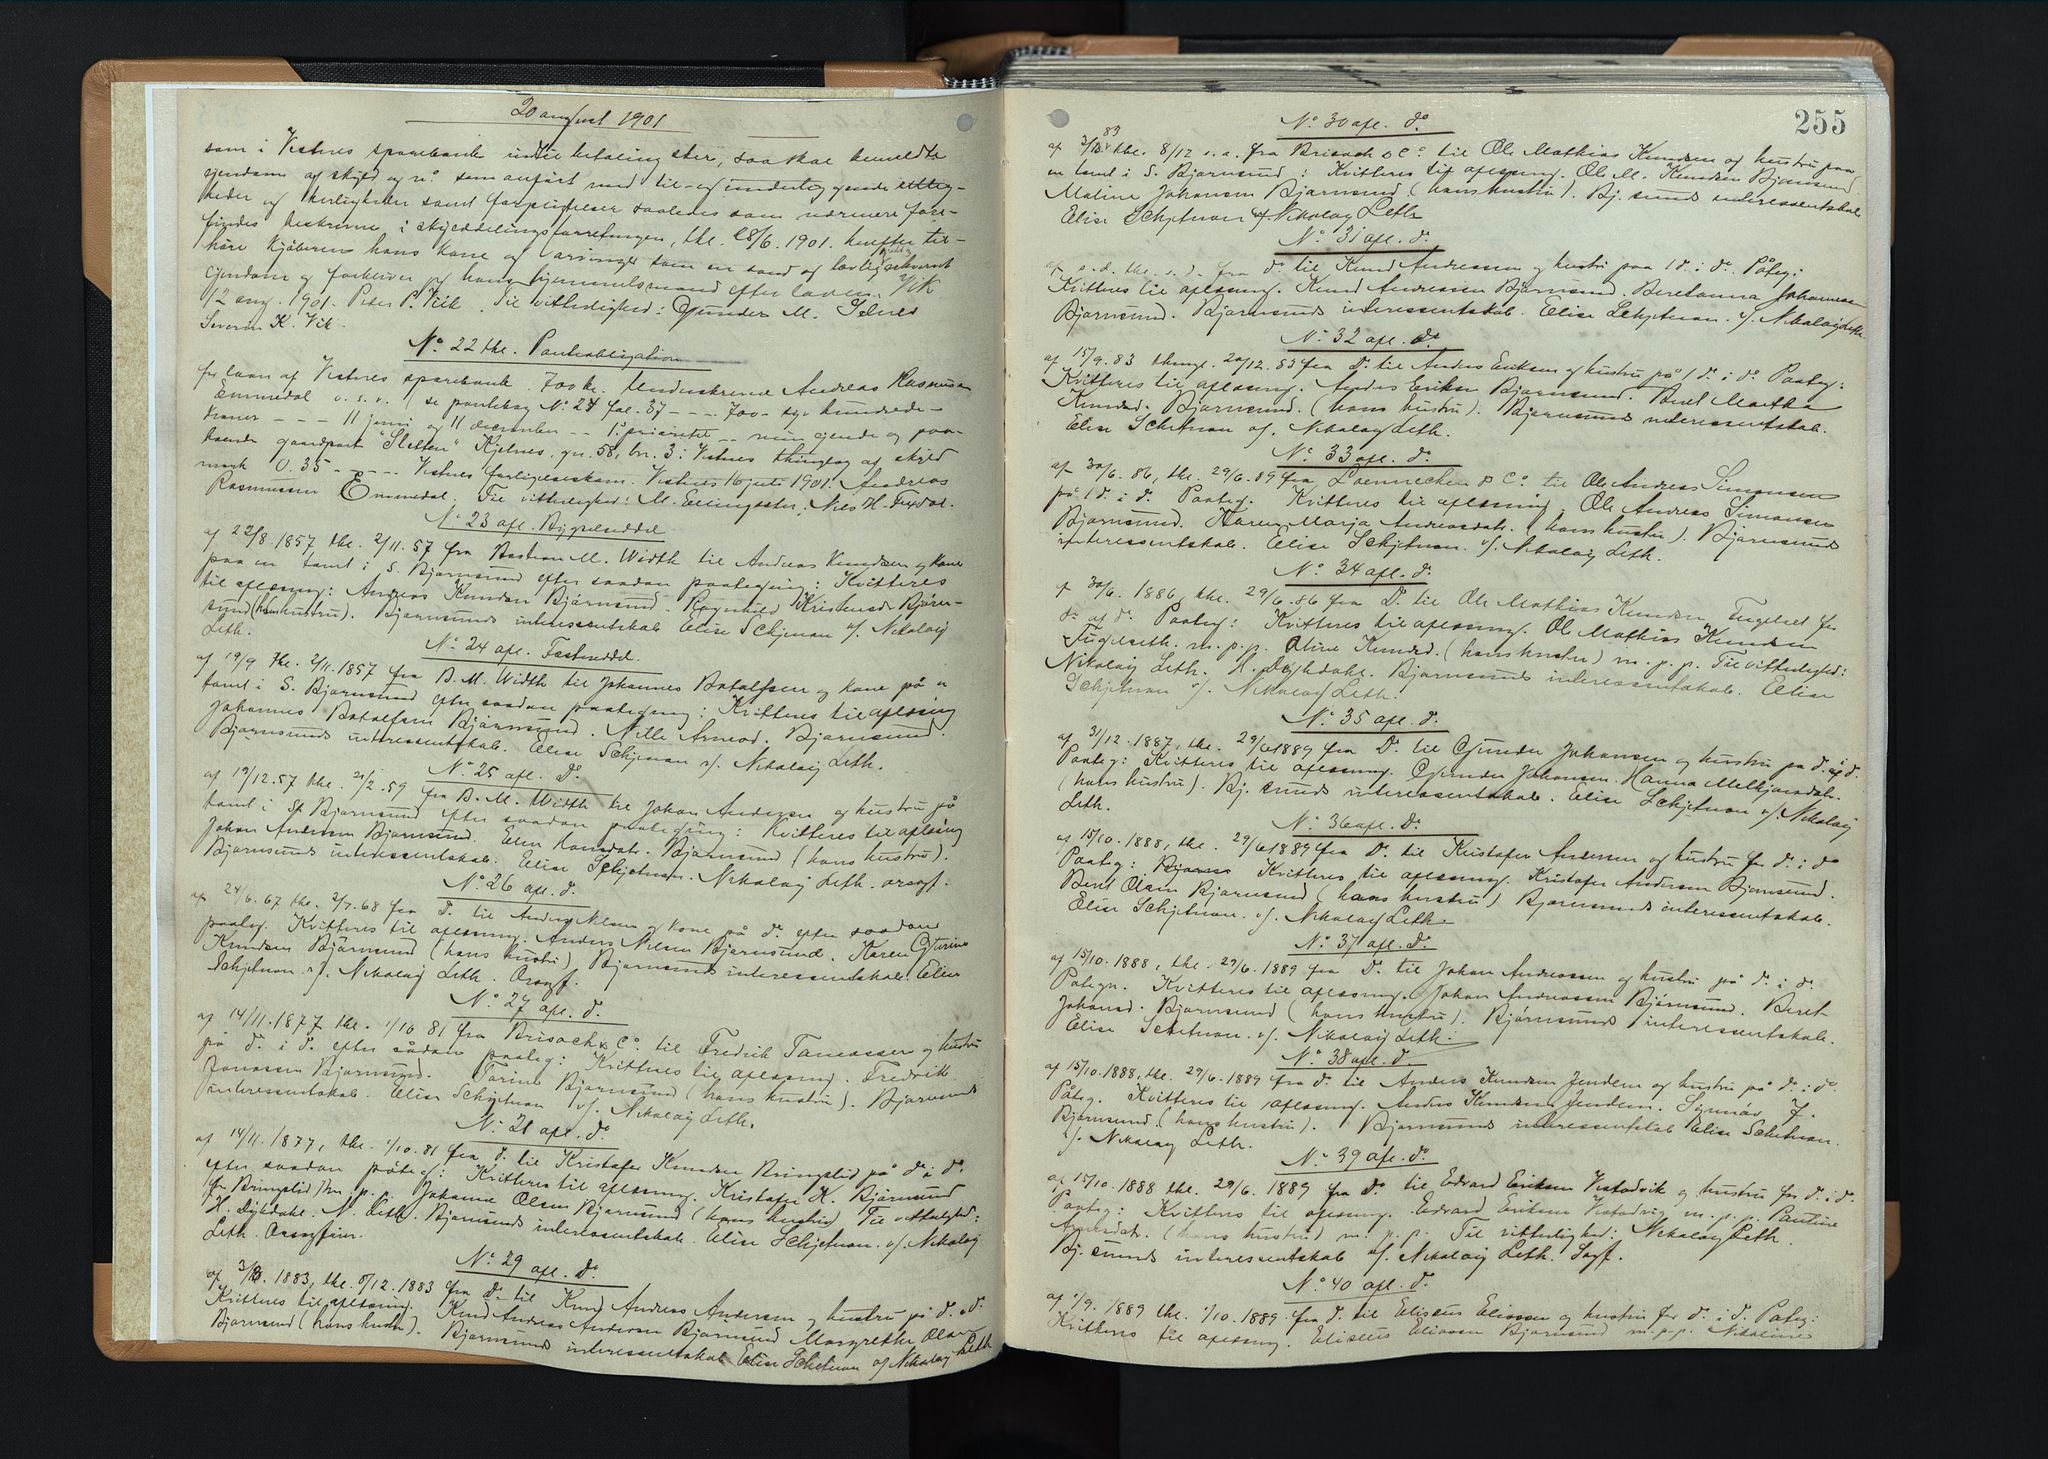 20 august 1901
som i Vestnes sparebank indtil betaling sker, saa skal bemeldte
eiendom af skyld og n° som anført med til- og underliggende
heder og herligheder samt forpligtelser saaledes som nærmere fore-
findes beskrevne i skylddelingsforretningen, thl. 28/6. 1901. herefter til-
høre kjøberen hans kone og arvinger som en sand og lovlig erhvervet
eiendom og forbliver jeg hans hjemmelsmand efter loven. Vik
12 aug. 1901. Peter P. Vik. Til vitterlighed: Gunder M. Selnes
Severin K. Vik.
No. 22 thl. Panteobligation
for laan af Vestnes sparebank. 700 kr. Underskrevne Andreas Rasmussen
Emmedal o. s. v. (se pantebog No. 24 fol. 37 - - - 700 - syv hundrede -
kroner - - - 11 juni og 11 december - - 1ste prioritet - - min eiende og paa-
boende gaardpart "Sletten" Kjelnes, gn. 58, bn. 3 i Vestnes thinglag af skyld
mark 0.35 - - - - - Vestnes forligelseskom. Vestnes 16 juli 1901. Andreas
Rasmussen Emmedal. Til vitterlighed: M. Ellingsæter, Nils H.
No. 23 afl. Bygselseddel
af 22/8. 1857 thl. 2/11. 57 fra Bastian M. Width til Andreas Knudsen og kone
paa en tomt i S. Bjørnsund efter saadan paategning: Kvitteres
til aflæsning: Andreas Knudsen Bjørnsund. Ragnhild Kristensd. Bjørn-
sund (hans hustru). Bjørnsunds interessentskab Elise Schjetnan v/. Nikolaij
Leth.
No. 24 afl. Festeseddel
af 19/9 thl. 2/11. 1857 fra B. M. Width til Johannes Botolfsen og kone på n
tomt i S. Bjørnsund efter saadan paategning: Kvitteres til aflæsning
Johannes Botolfsen Bjørnsund. Nille Arnesd. Bjørnsund.
Bjørnsunds interessentskab. Elise Schjetnan v/. Nikolaij Leth.
No. 25 afl. Do
af 19/12. 57 thl. 21/2. 59 fra B. M. Width til Johan Andersen og hustru på
tomt i S. Bjørnsund efter saadan paategning: Kvitteres til aflæsning
Johan Andersen Bjørnsund. Elen Hansdatr. Bjørnsund (hans hustru).
Bjørnsunds interessentskab. Elise Schjetnan. Nikolaij Leth.
No. 26 afl. do.
af 24/6. 67 thl. 2/7. 68 fra D. til Anders Nilsen og kone på do. efter saadan
paateg. Kvitteres til aflæsning. Anders Nilsen Bjørnsund. Karen Gjurine
Knudsen Bjørnsund (hans hustru) Bjørnsunds interessentskab. Elise
Schjetnan v/. Nikolaij Leth.
No. 27 afl. do.
af 14/11. 1877 thl. 1/10 81 fra Brisach & Co. til Fredrik Tomassen og hustru
på do. i do. efter sådan paateg: Kvitteres til aflæsning. Fredrik
Jonassen Bjørnsund. Tarine Bjørnsund (hans hustru). Bjørnsunds
interessentskab. Elise Schjetnan v/. Nikolaij Leth.
No. 28 afl. do.
af 14/11. 1877, thl. 1/10. 81 fra do. til Kristofer Knudsen Bringslid på do. i do.
efter saadan påteg.: Kvitteres til aflæsning. Kristofer K. Bjørnsund
fr. Bringslid m. p. p. Johanne Olsen Bjørnsund (hans hustru) Til vitterlighed:
H. Dyhdahl. N. Leth. Bjørnsunds interessentskab. Elise Schjetnan. v/. Nikolaij
Leth.
No. 29 afl. do.
af 3/8. 1883, thl. 8/12. 1883 fra do. til Knud Andreas Andersen og hustru på do. i do.
Kvitteres til aflæsning. Knud Andreas Andersen Bjørnsund Margrethe Olsen
Bjørnsund (hans hustru). Bjørnsunds interessentskab Elise Schetnan v/ Nikolaij Leth
255
No. 30 afl. do
af thl. 8/12 s. a. fra Brisach & Co. til Ole Mathias Knudsen og hustru paa
en tomt i S. Bjørnsund: Kvitteres til aflæsning. Ole M. Knudsen Bjørnsund.
Maline Johansen Bjørnsund (hans hustru). Bj.sunds interessentskab
Elise Schjetnan v/ Nikolay Leth.
No. 31 afl. do.
af s. d. thl. s. d. fra do til Knud Andreassen og hustru paa 1 do. i do. Påteg:
Kvitteres til aflæsning. Knud Andreassen Bjørnsund. Beretanna Johannesen
Bjørnsund. Bjørnsunds interessentskab. Elise Schjetnan. v/. Nikolaij Leth
No. 32 afl. do
af 15/9. 83 thingl. 20/12. 83 fra D. til Anders Eriksen og hustru på 1 do. i do. Paateg:
Kvitteres til aflæsning. Anders Eriksen Bjørnsund. Beret Martha
Knudsd. Bjørnsund. (hans hustru). Bjørnsunds interessentskab.
Elise Schetnan v/. Nikolaij Leth.
No. 33 afl. do.
af 30/6. 86, thl. 29/6. 89 fra Loennechen & Co. til Ole Andreas Simonsen
på 1 do. i do. Paateg. Kvitteres til aflæsning. Ole Andreas Simonsen
Bjørnsund. Karen Marja Andreasdatr. (hans hustru). Bjørnsunds
interessentskab. Elise Schjetnan. v/. Nikolaij Leth.
No. 34 afl. do.
af 30/6. 1886, thl. 29/6. 86 fra D. til Ole Mathias Knudsen Fugelset for
do. af do. Paateg: Kvitteres til aflæsning. Ole Mathias Knudsen
Fugelseth. m. p. p. Oline Knudsd. (hans hustru) m. p. p. Til vitterlighed:
Nikolaij Leth. H. Dyhdahl. Bjørnsunds interessentskab. Elise
Schjetnan v/. Nikolaij Leth.
No. 35 afl. do.
af 31/12. 1887, thl. 29/6 1889 fra D. til Gunder Johansen og hustru på do. i do.
Paateg: Kvitteres til aflæsning. Gunder Johansen. Hanna Melkjorsdatr.
(hans hustru). Bj.sunds interessentskab. Elise Schjetnan v/. Nikolaij
Leth.
No. 36 afl. Do.
af 15/10. 1888, thl. 29/6 1889 fra D. til Kristofer Andersen og hustru for do. i do
Paateg: Kvitteres til aflæsning. Kristofer Andersen Bjørnsund.
Beret Olsen Bjørnsund (hans hustru) Bjørnsunds interessentskab.
Elise Schjetnan. v/. Nikolaij Leth.
No. 37 afl. Do.
af 15/10. 1888, thl. 29/6. 1889 fra D. til Johan Andreassen og hustru på do. i do.
Pategn. Kvitteres til aflæsning. Johan Andreassen Bjørnsund. Beret
Johansd. Bjørnsund (hans hustru). Bjørnsunds interessentskab.
Elise Schetnan. v/. Nikolaij Leth.
No. 38 afl. do
af 15/10. 1888, thl. 29/6. 1889 fra do. til Anders Knudsen Jendem og hustru på do. i do
Påteg. Kvitteres til aflæsning. Anders Knudsen Jendem. Synnøv J.
Bjørnsund (hans hustru). Bjørnsunds interessentskab Elise Schetnan.
v/. Nikolaij Leth.
No. 39 afl. do.
af 15/10. 1888 thl. 29/6. 1889 fra Do. til Edvard Eriksen Vestadvik og hustru for do. i do.
Paateg: Kvitteres til aflæsning. Edvard Eriksen Vestadvig m. p. p. Pauline
(hans hustru) m. p. p. Til vitterlighed: Nikolaij Leth.
Bj.sunds interessentskab v/. Nikolaij Leth.
No. 40 afl. do.
af 1/9. 1889 thl. 1/10. 1889. fra do. til Eliseus Eliassen og hustru for do. i do. Pateg:
Kvitteres til aflæsning. Eliseus Eliassen Bjørnsund m. p. p. Nikoline